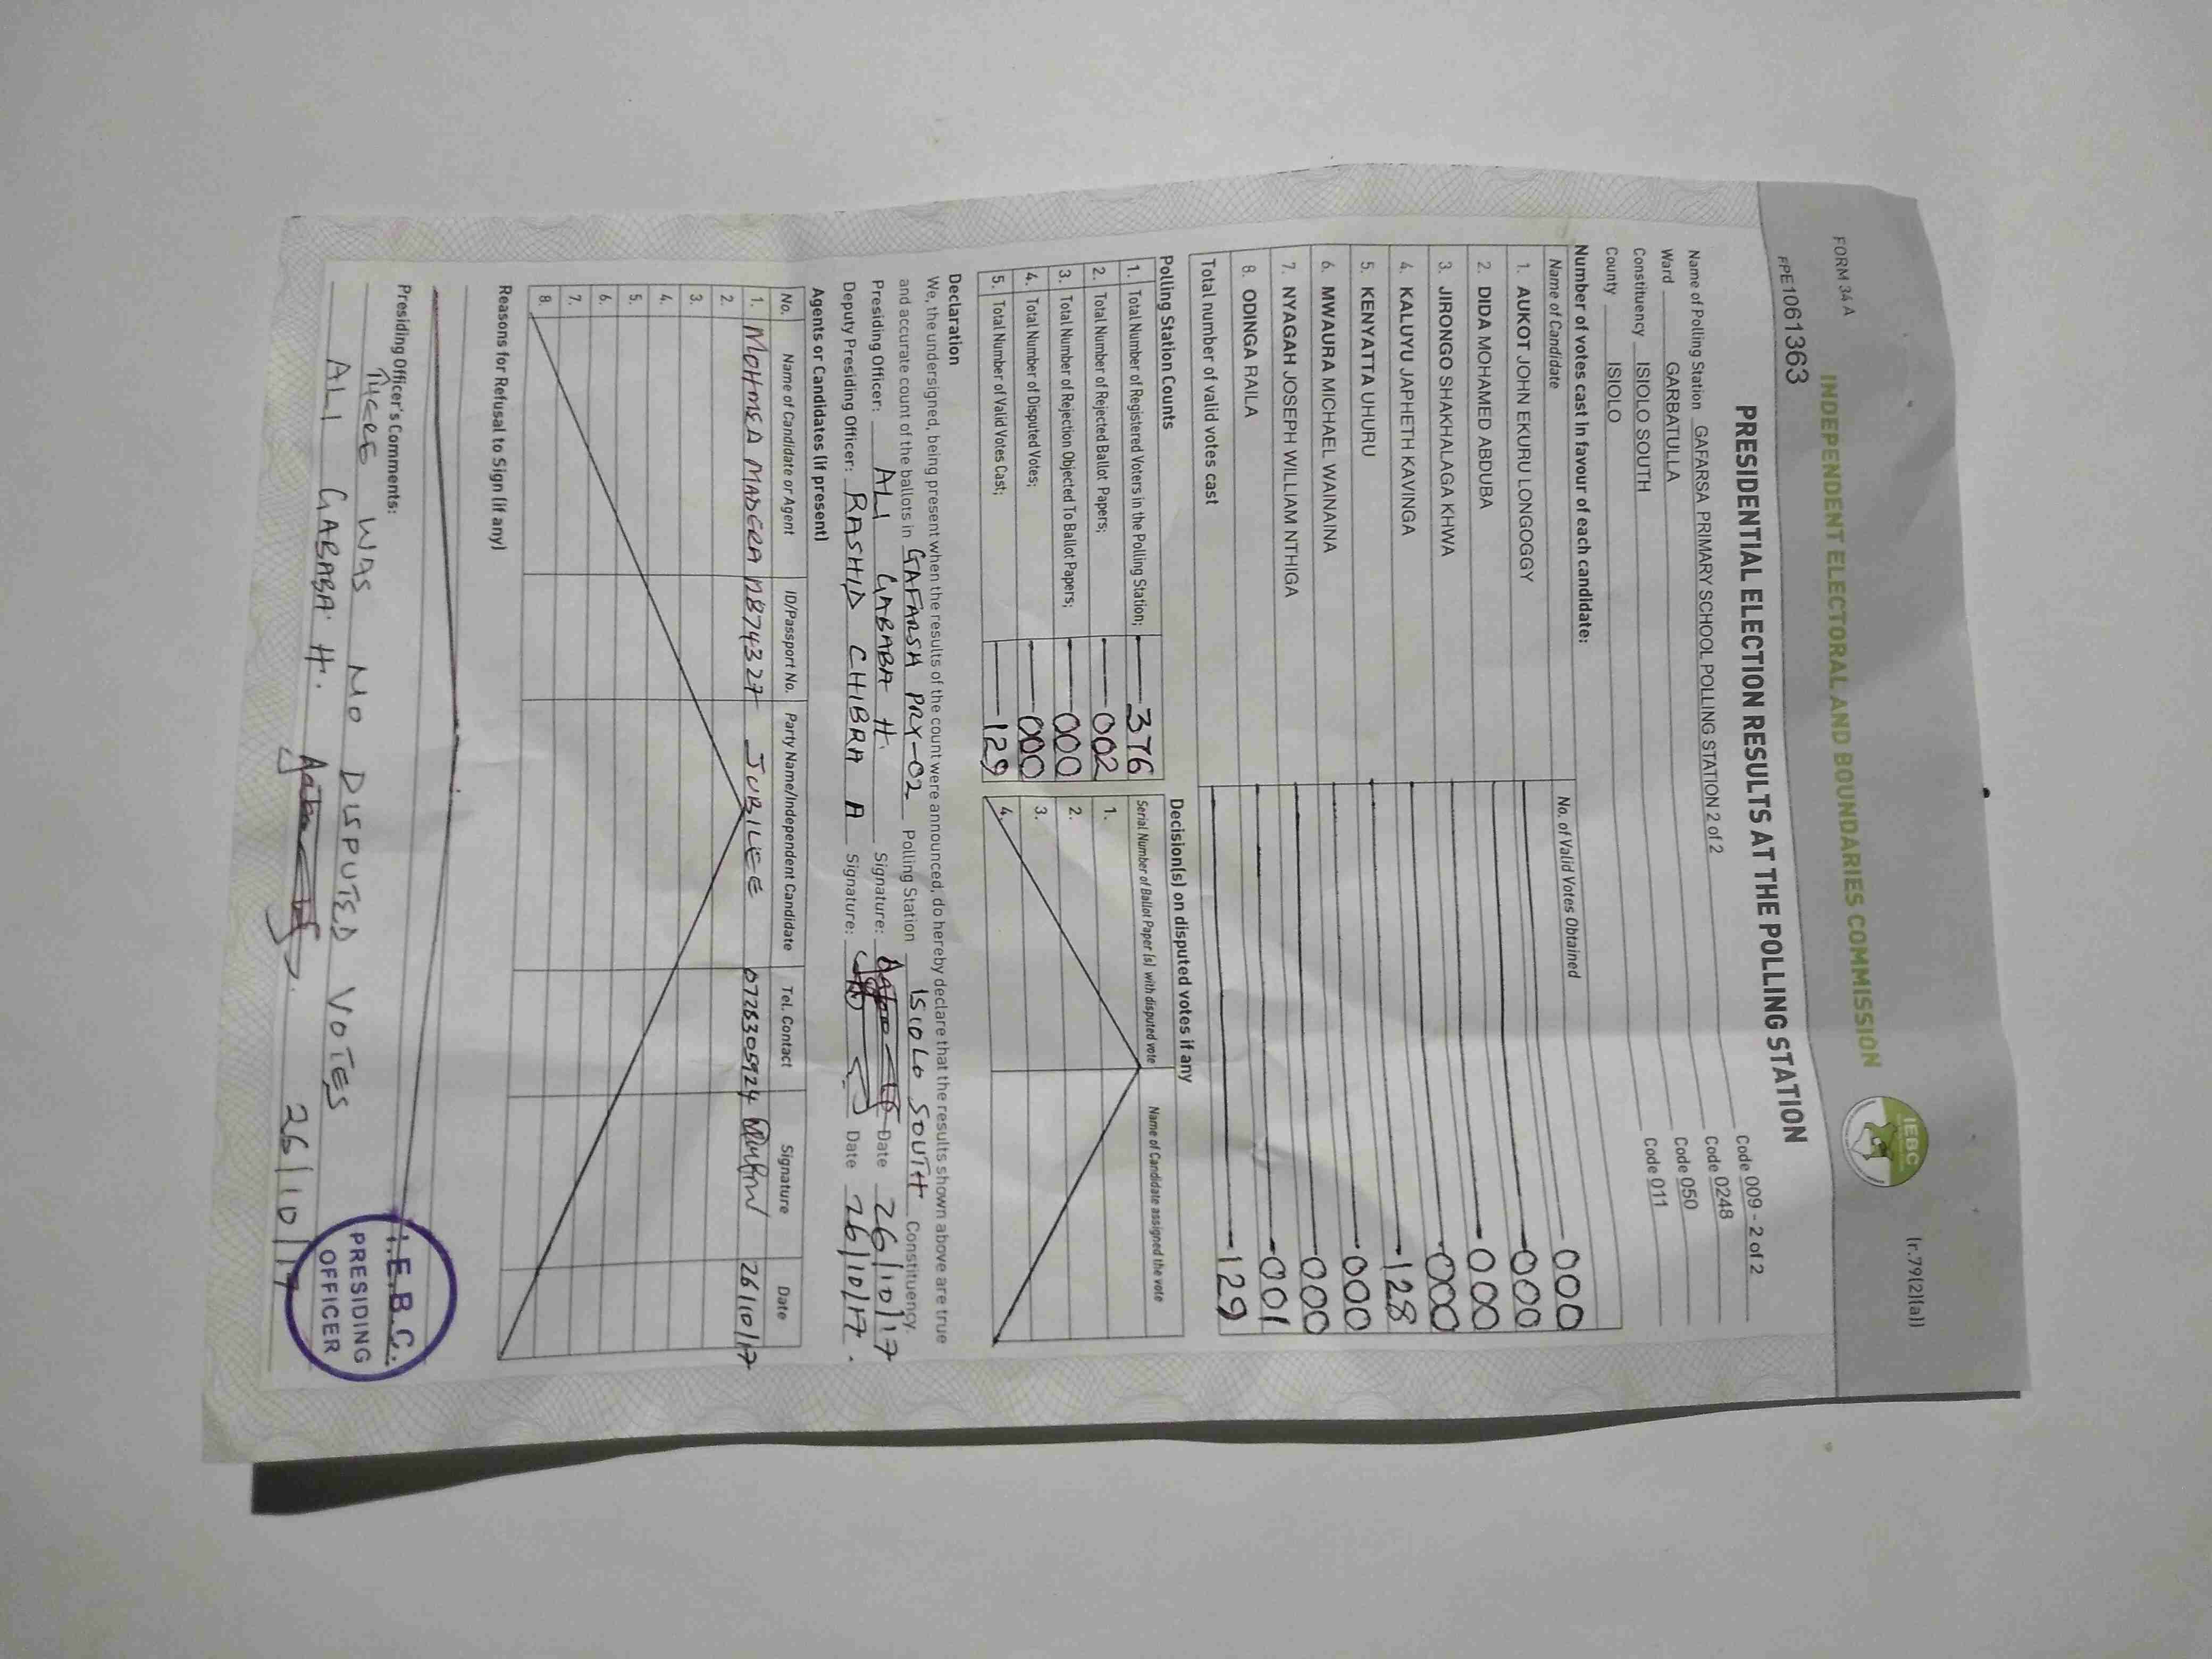 FORM 34 A
(r.79(2)(a))
INDEPENDENT ELECTORAL AND BOUNDARIES COMMISSION
IEBC
FPE1061363
PRESIDENTIAL ELECTION RESULTS AT THE POLLING STATION
Name of Polling Station GAFARSA PRIMARY SCHOOL POLLING STATION 2 of 2 Code 009 - 2 of 2
Ward GARBATULLA Code 0248
Constituency ISIOLO SOUTH Code 050
County ISIOLO Code 011
Number of votes cast in favour of each candidate:
Name of Candidate No. of Valid Votes Obtained
1. AUKOT JOHN EKURU LONGOGGY 000
2. DIDA MOHAMED ABDUBA 000
3. JIRONGO SHAKHALAGA KHWA 000
4. KALUYU JAPHETH KAVINGA 000
5. KENYATTA UHURU 128
6. MWAURA MICHAEL WAINAINA 000
7. NYAGAH JOSEPH WILLIAM NTHIGA 000
8. ODINGA RAILA 001
Total number of valid votes cast 129
Polling Station Counts
1. Total Number of Registered Voters in the Polling Station; 376
2. Total Number of Rejected Ballot Papers; 002
3. Total Number of Rejection Objected To Ballot Papers; 000
4. Total Number of Disputed Votes; 000
5. Total Number of Valid Votes Cast; 129
Decision(s) on disputed votes if any
Serial Number of Ballot Paper (s) with disputed vote Name of Candidate assigned the vote
1.
2.
3.
4.
Declaration
We, the undersigned, being present when the results of the count were announced, do hereby declare that the results shown above are true
and accurate count of the ballots in GAFARSA PRY-02 Polling Station ISIOLO SOUTH Constituency.
Presiding Officer: ALI GABABA H. Signature: Date 26/10/17
Deputy Presiding Officer: RASHID CHIBRA A Signature: Date 26/10/17.
Agents or Candidates (if present)
No. Name of Candidate or Agent ID/Passport No. Party Name/Independent Candidate Tel. Contact Signature Date
1. MOHMED MADERA JUBILEE 0728305924 26/10/17
2.
3.
4.
5.
6.
7.
8.
Reasons for Refusal to Sign (if any)
Presiding Officer's Comments:
THERE WAS NO DISPUTED VOTES
ALI GABABA H. 26/10/17
I.E.B.C.
PRESIDING
OFFICER